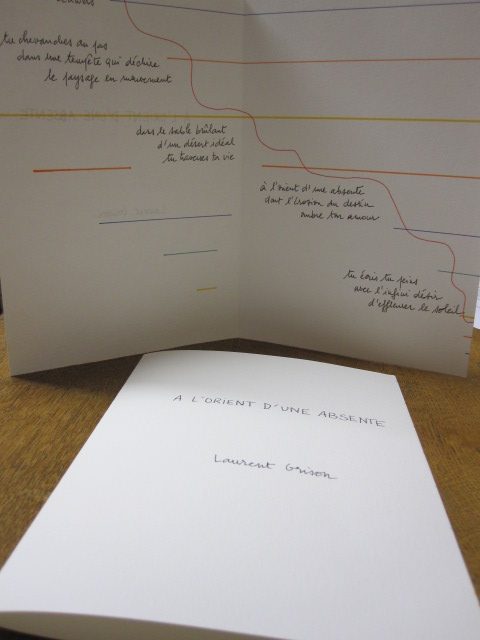 tu chevauches au pas
dans une tempête qui déchire
le paysage en mouvement
dans le sable brûlant
d'un désert idéal
tu traverses ta vie
à l'orient d'une absente
dont l'érosion du destin
ombre ton amour
tu écris tu peins
avec l'infini désir
d'effleurer le soleil
A L'ORIENT D'UNE ABSENTE
Laurent Grison